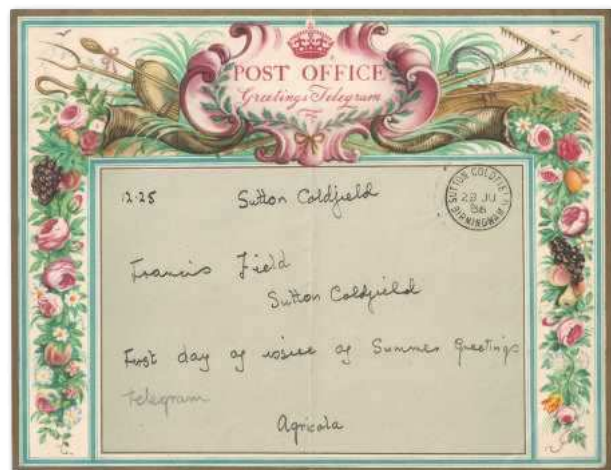 POST OFFICE
Greetings Telegram
12.25 Sutton Coldfield
SUTTON COLDFIELD
28 JU
56
BIRMINGHAM
Francis Field
Sutton Coldfield
First day of issue of Summer Greetings
Telegram
Agricola